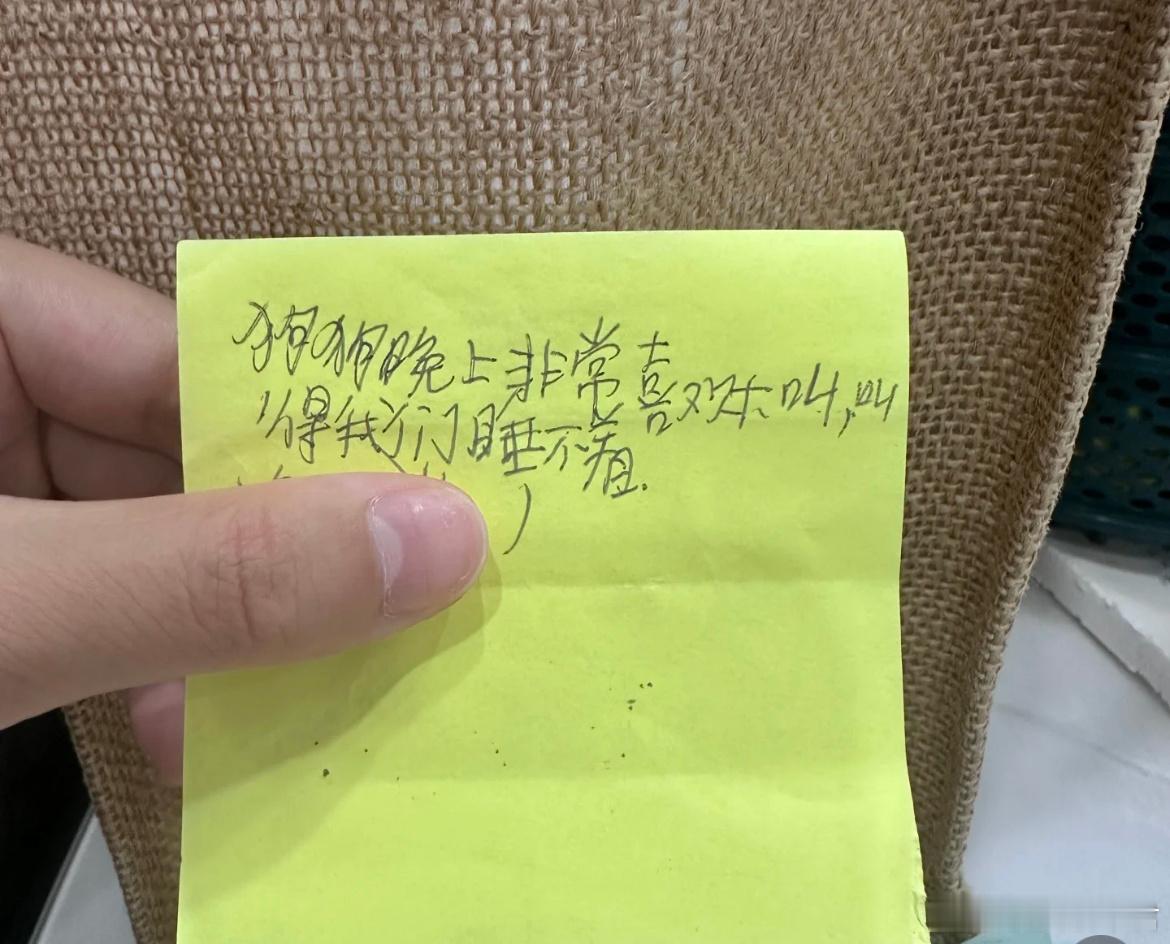 狗狗晚上非常喜欢乐叫,叫
得我们睡不着.